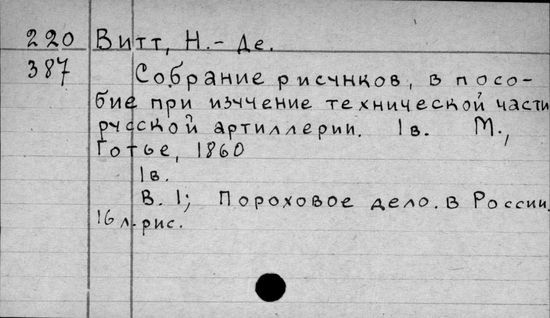 220 Витт, Н.- Де.
387 Собрание рисунков, в посо-
бие при изучение технической части
русской артиллерии. 1в. М.,
Готье, 1860
1в.
В. 1; Пороховое дело. в России.
16 л. рис.